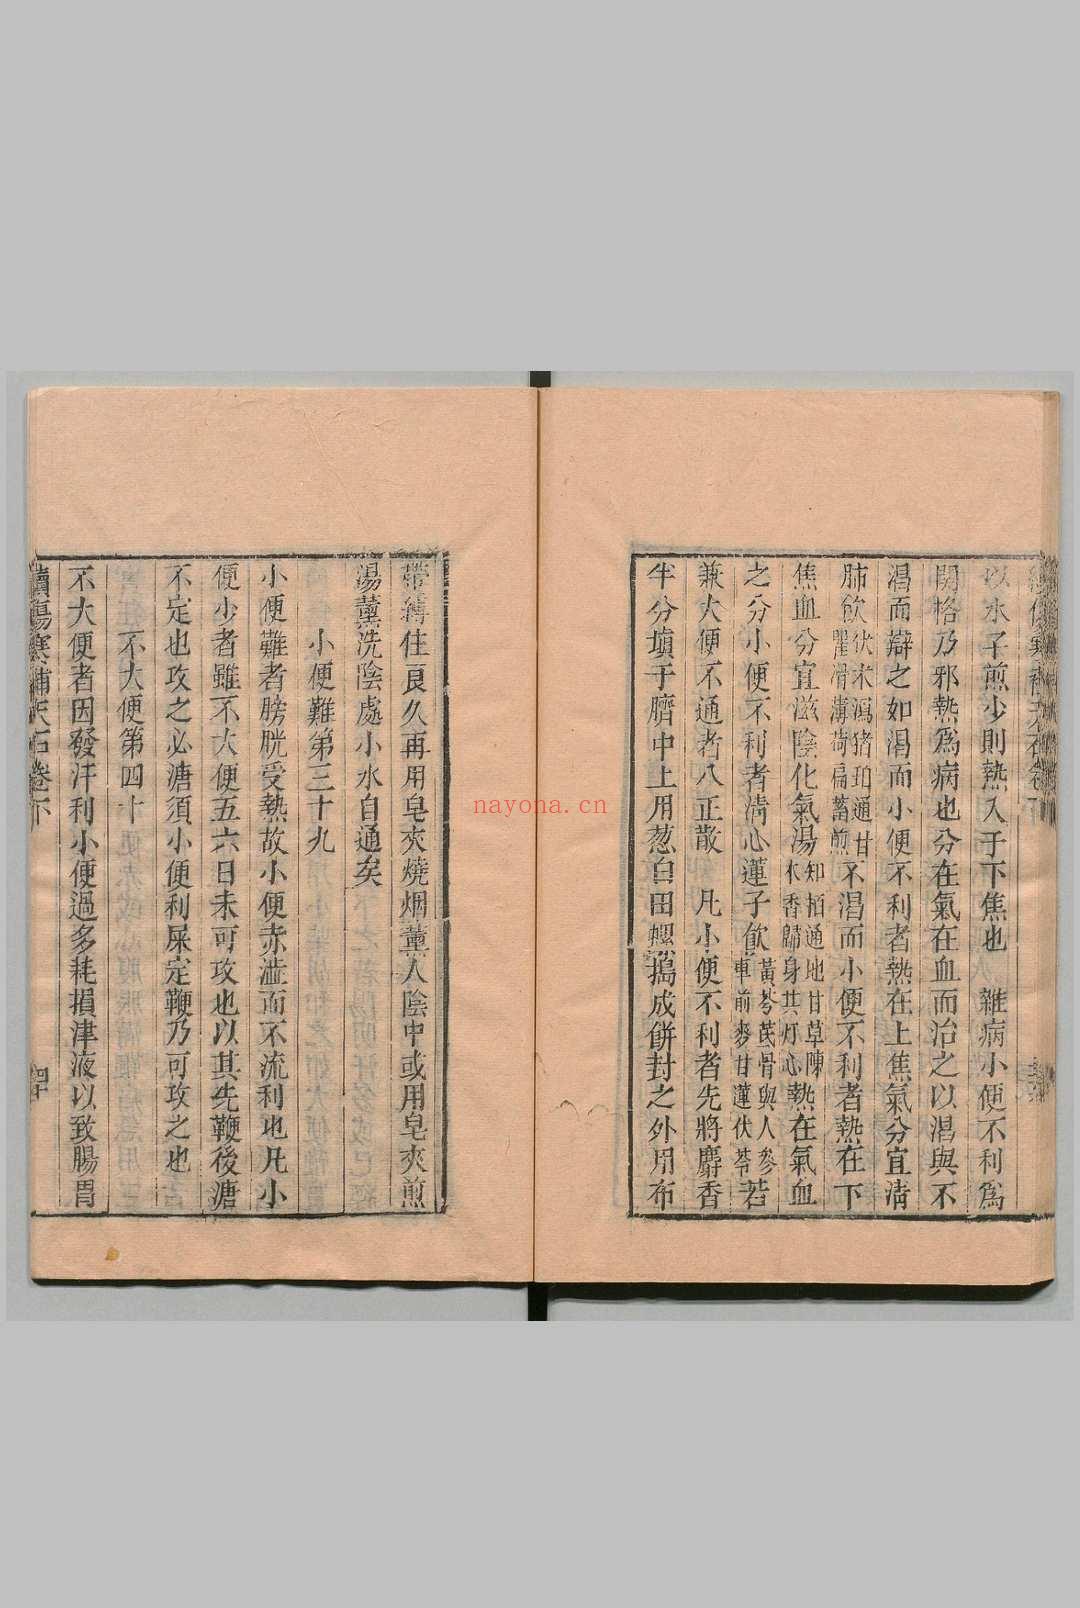 以水子煎少則熱入于下焦也　雜病小便不利爲
関格乃邪熱爲病也分在氣在血而治之以渴與不
渴而辯之如渴而小便不利者熱在上焦氣分宜清
肺飲伏末瀉猪珀通甘瞿滑萹蓄煎不渴而小便不利者熱在下
焦血分宜滋陰化氣湯知栢通地甘草陳木香歸身其灯心熱在氣血
之分小便不利者清心蓮子飲黃芩芪骨與人參車前麥甘蓮伏苓若
兼大便不通者八正散　凡小便不利者先將麝香
半分塡于臍中上用葱白田螺搗成餅封之外用布
帶縛住良久再用皂夾燒烟薰人陰中或用皂夾煎
湯薰洗陰處小水自通矣
小便難第三十九
小便難者膀胱受熱故小便赤澁而不流利也凡小
便少者雖不大便五六日未可攻也以其先鞕後溏
不定也攻之必溏須小便利屎定鞕乃可攻之也
不大便第四十
不大便者因發汗利小便過多耗損津液以致腸胃
續傷寒補天石卷下
四十
nayona.cn